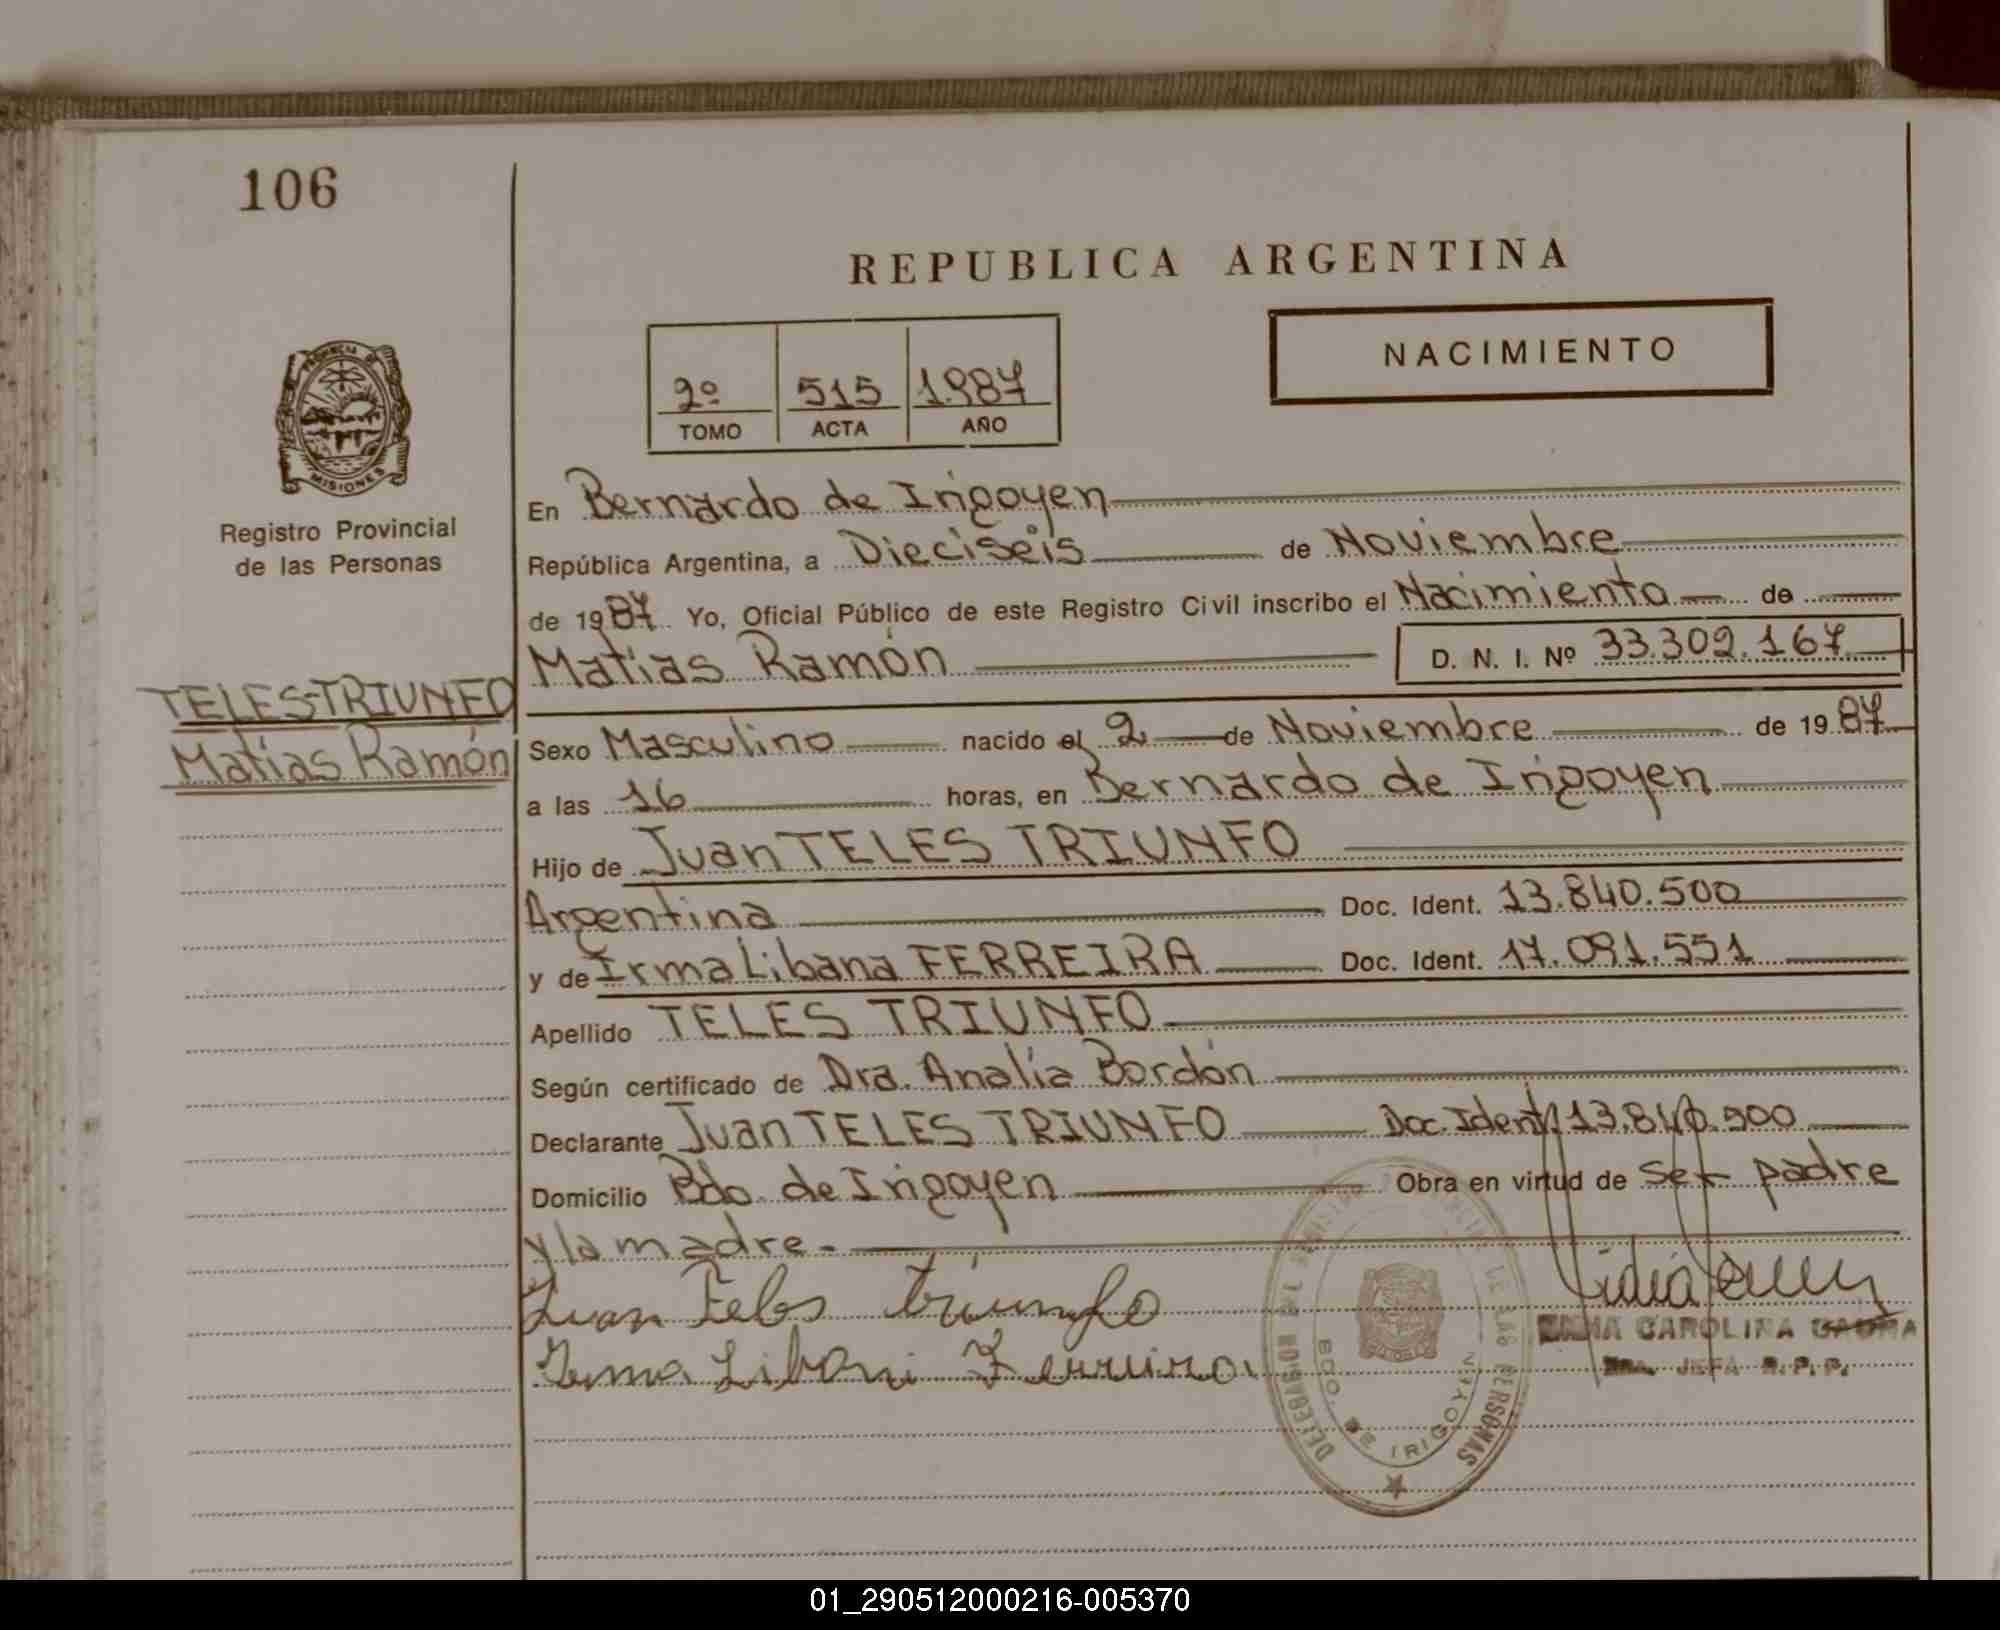 106
REPUBLICA ARGENTINA
NACIMIENTO
2º 515 1.987
TOMO ACTA AÑO
PROVINCIA DE
MISIONES
Registro Provincial
de las Personas
TELES-TRIUNFO
Matías Ramón
En Bernardo de Irigoyen
República Argentina, a Dieciséis de Noviembre
de 1987 Yo, Oficial Público de este Registro Civil inscribo el Nacimiento de
Matías Ramón D. N. I. Nº 33.302.167
Sexo Masculino nacido el 2 de Noviembre de 1987
a las 16 horas, en Bernardo de Irigoyen
Hijo de Juan TELES TRIUNFO
Argentina Doc. Ident. 13.840.500
y de Irma Libana FERREIRA Doc. Ident. 17.091.551
Apellido TELES TRIUNFO
Según certificado de Dra. Analía Bordón
Declarante Juan TELES TRIUNFO Doc. Ident. 13.840.500
Domicilio Bdo. de Irigoyen Obra en virtud de ser padre
y la madre.
Juan Teles triunfo
Irma Libani Ferreira
CAROLINA
JEFA R.P.P.
DELEGACION DEL DE LAS PERSONAS
BDO. DE IRIGOYEN
01_290512000216-005370